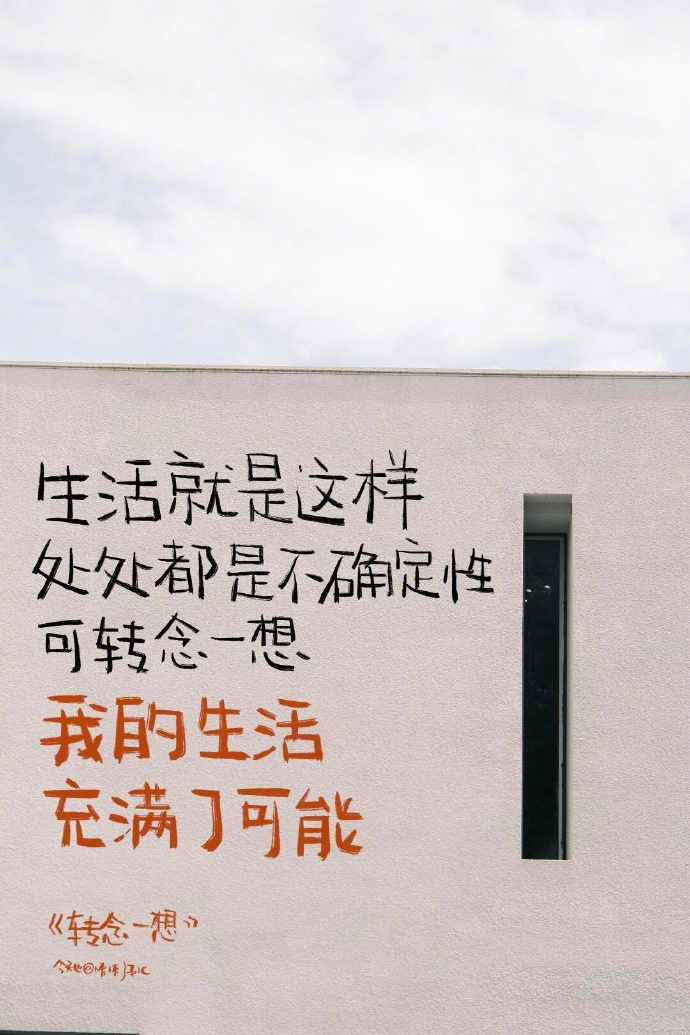 生活就是这样
处处都是不确定性
可转念一想
我的生活
充满了可能
《转念一想》